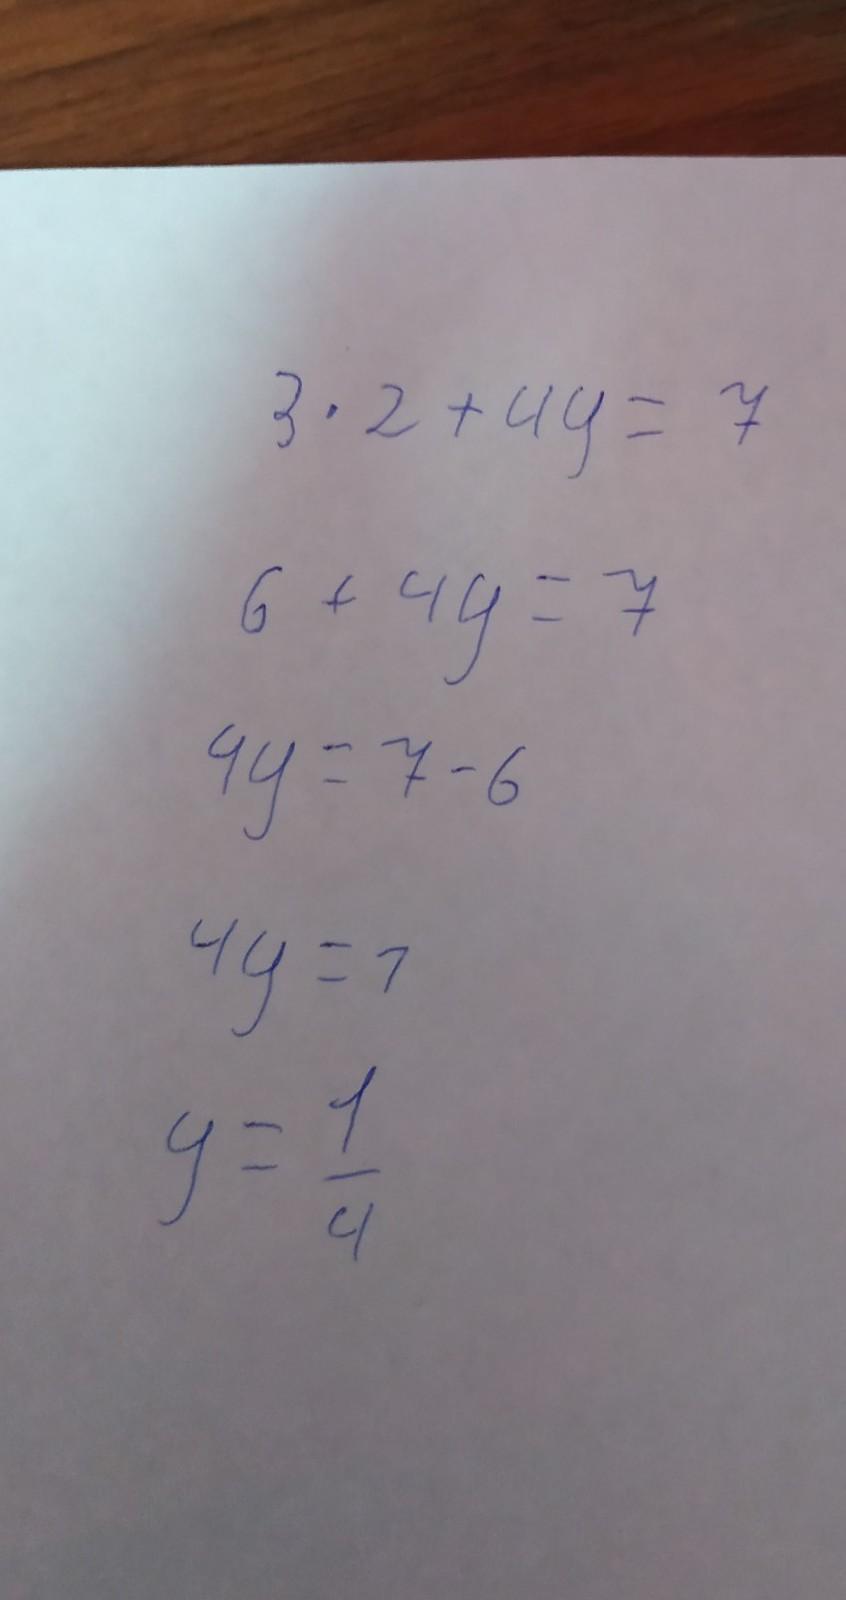 3 · 2 + 4y = 7
6 + 4y = 7
4y = 7 - 6
4y = 1
y = 1/4